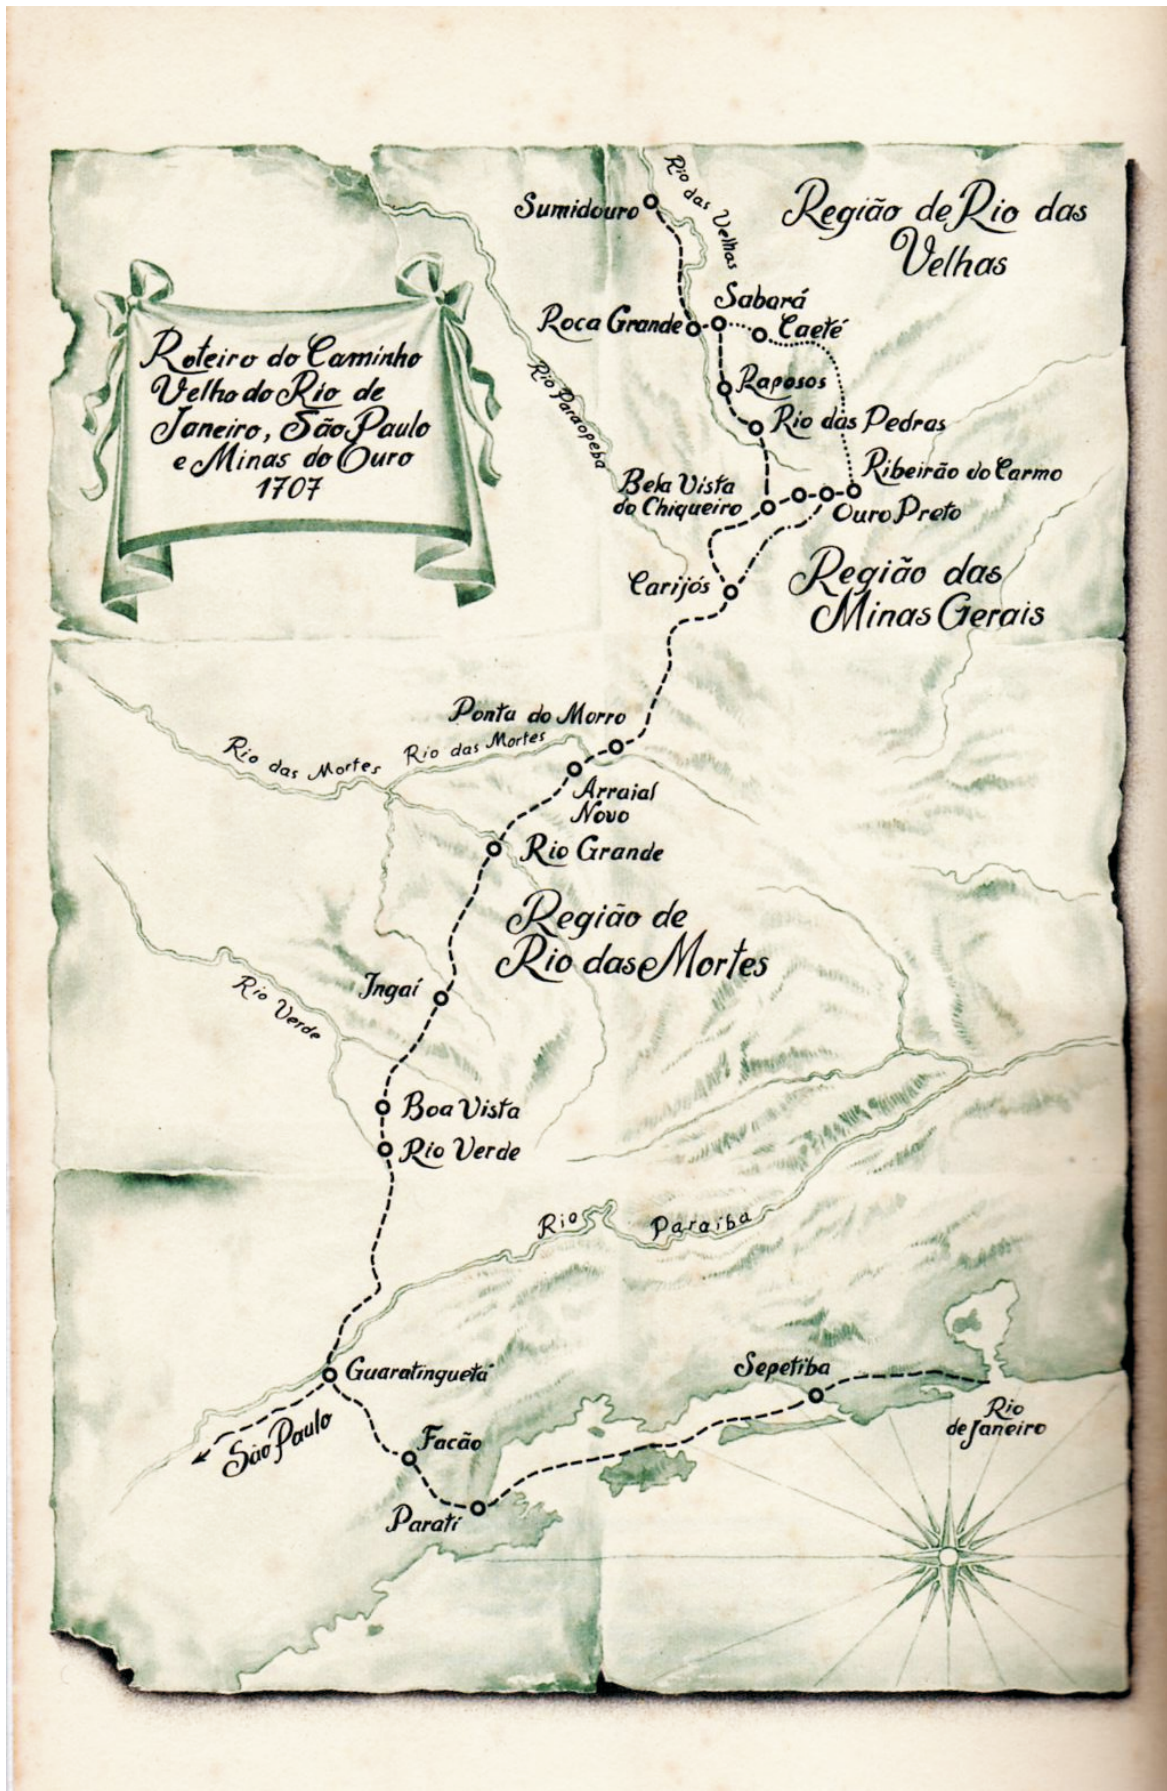 Roteiro do Caminho
Velho do Rio de
Janeiro, São Paulo
e Minas do Ouro
1707
Sumidouro
Rio das Velhas
Região de Rio das
Velhas
Sabará
Roca Grande
Caeté
Rio Paraopeba
Raposos
Rio das Pedras
Ribeirão do Carmo
Bela Vista
do Chiqueiro
Ouro Preto
Carijós
Região das
Minas Gerais
Ponta do Morro
Rio das Mortes
Rio das Mortes
Arraial
Novo
Rio Grande
Região de
Rio das Mortes
Ingaí
Rio Verde
Boa Vista
Rio Verde
Rio Paraíba
Guaratinguetá
Sepetiba
Rio
de Janeiro
São Paulo
Facão
Parati